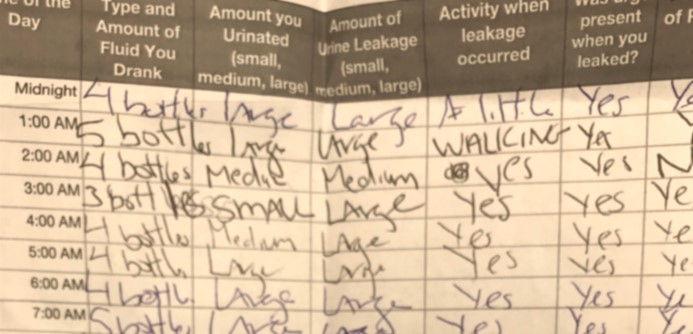 of the
Day
Type and
Amount of
Fluid You
Drank
Amount you
Urinated
(small,
medium, large)
Amount of
Urine Leakage
(small,
medium, large)
Activity when
leakage
occurred
present
when you
leaked?
of
Midnight 4 bottles large Large A little Yes
1:00 AM 5 bottles large large WALKING Yes
2:00 AM 4 bottles Medie Medium yes Yes N
3:00 AM 3 bottles SMALL LArge Yes Yes Ye
4:00 AM 4 bottles Medium LAge Yes Yes Ye
5:00 AM 4 bottl Large Large Yes Yes Ye
6:00 AM 4 bottl LArge Large Yes Yes Ye
7:00 AM 5 bottles LArge Large Yes Yes Ye